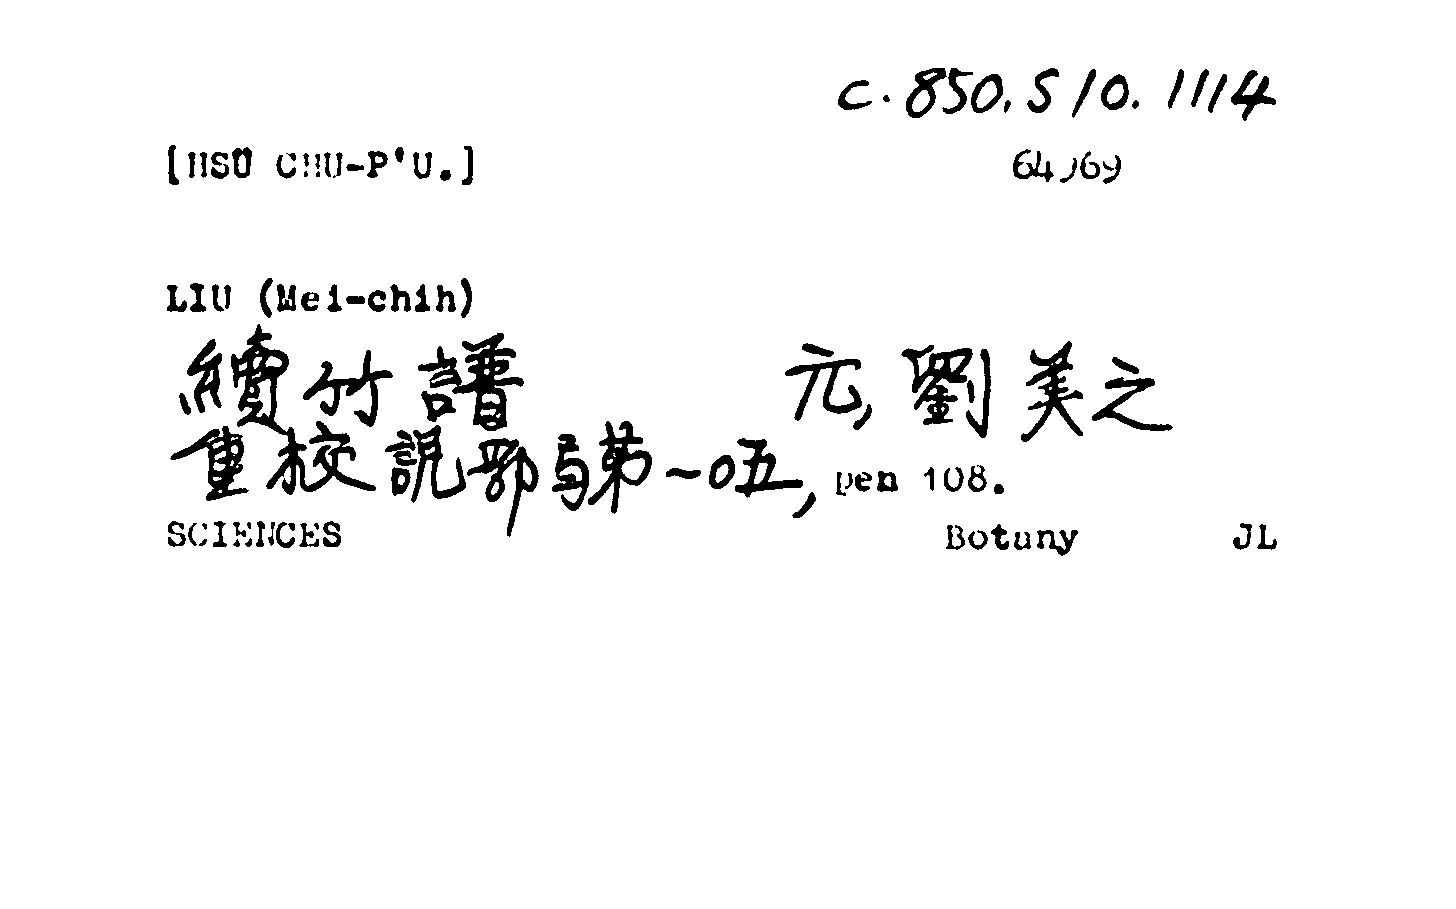 c. 850. 510. 1114
[HSÜ CHU-P'U.] 64)69
LIU (Mei-chih)
續竹譜 元, 劉美之
重校說郛弓第一〇五, pen 108.
SCIENCES Botany JL